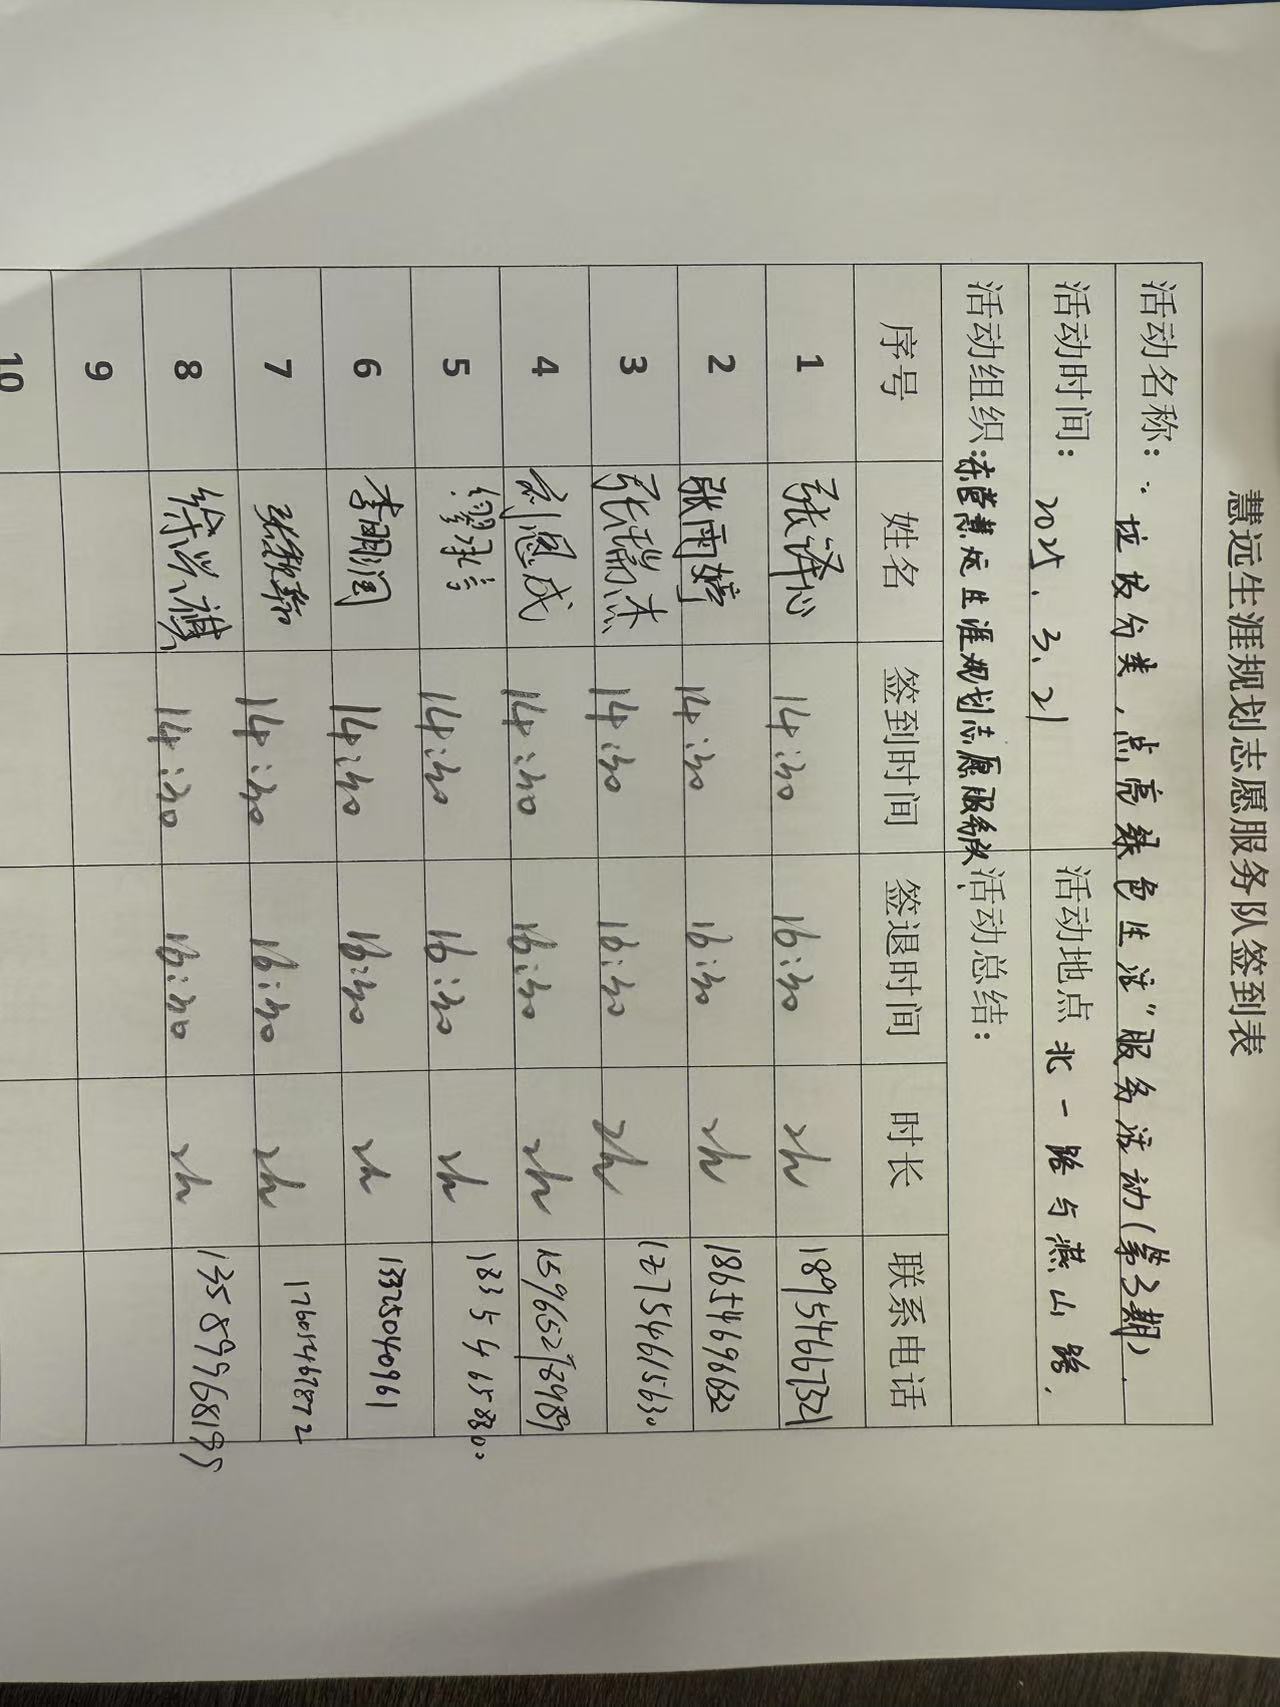 慧远生涯规划志愿服务队签到表
活动名称：“垃圾分类，点亮绿色生活”服务活动(第3期)
活动时间：2025.3.21 活动地点 北一路与燕山路
活动组织：东营慧远生涯规划志愿服务队 活动总结：
序号 姓名 签到时间 签退时间 时长 联系电话
1 张译心 14:30 16:30 2h 18954667321
2 张雨婷 14:30 16:30 2h 18654696632
3 张瑞杰 14:30 16:30 2h 17754615630
4 刘恩成 14:30 16:30 2h
5 14:30 16:30 2h 18354658800
6 李明润 14:30 16:30 2h 13325040961
7 14:30 16:30 2h 17605467872
8 徐兴祺 14:30 16:30 2h 13589968195
9
10